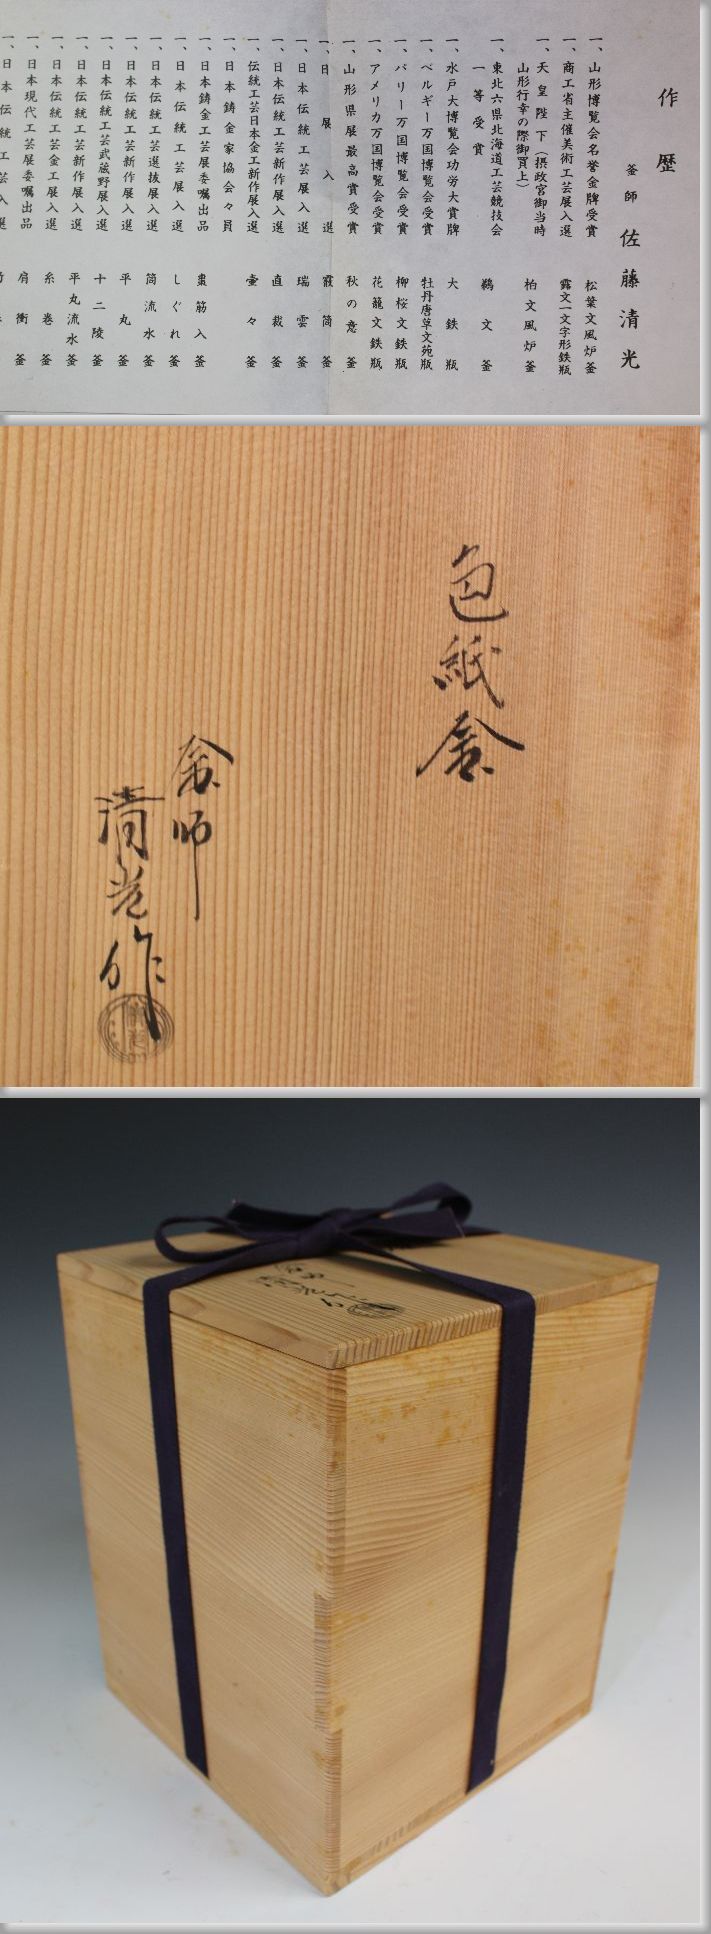 作歴
釜師 佐藤清光
一、山形博覧会名誉金牌受賞 松葉文風炉釜
一、商工省主催美術工芸展入選 霰文一文字形鉄瓶
一、天皇陛下(摂政宮御当時
山形行幸の際御買上) 柏文風炉釜
一、東北六県北海道工芸競技会
一等受賞 鵜文釜
一、水戸大博覧会功労大賞牌 大鉄瓶
一、ベルギー万国博覧会受賞 牡丹唐草文苑瓶
一、パリー万国博覧会受賞 柳桜文鉄瓶
一、アメリカ万国博覧会受賞 花籠文鉄瓶
一、山形県展最高賞受賞 秋の意釜
一、日展入選 霰筒釜
一、日本伝統工芸展入選 瑞雲釜
一、日本伝統工芸新作展入選 直裁釜
一、伝統工芸日本金工新作展入選 壷々釜
一、日本鋳金家協会々員
一、日本鋳金工芸展委嘱出品 棗筋入釜
一、日本伝統工芸展入選 しぐれ釜
一、日本伝統工芸選抜展入選 筒流水釜
一、日本伝統工芸新作展入選 平丸釜
一、日本伝統工芸武蔵野展入選 十二陵釜
一、日本伝統工芸新作展入選 平丸流水釜
一、日本伝統工芸金工展入選 糸巻釜
一、日本現代工芸展委嘱出品 肩衝釜
一、日本伝統工芸入選
色紙釜
釜師
清光作